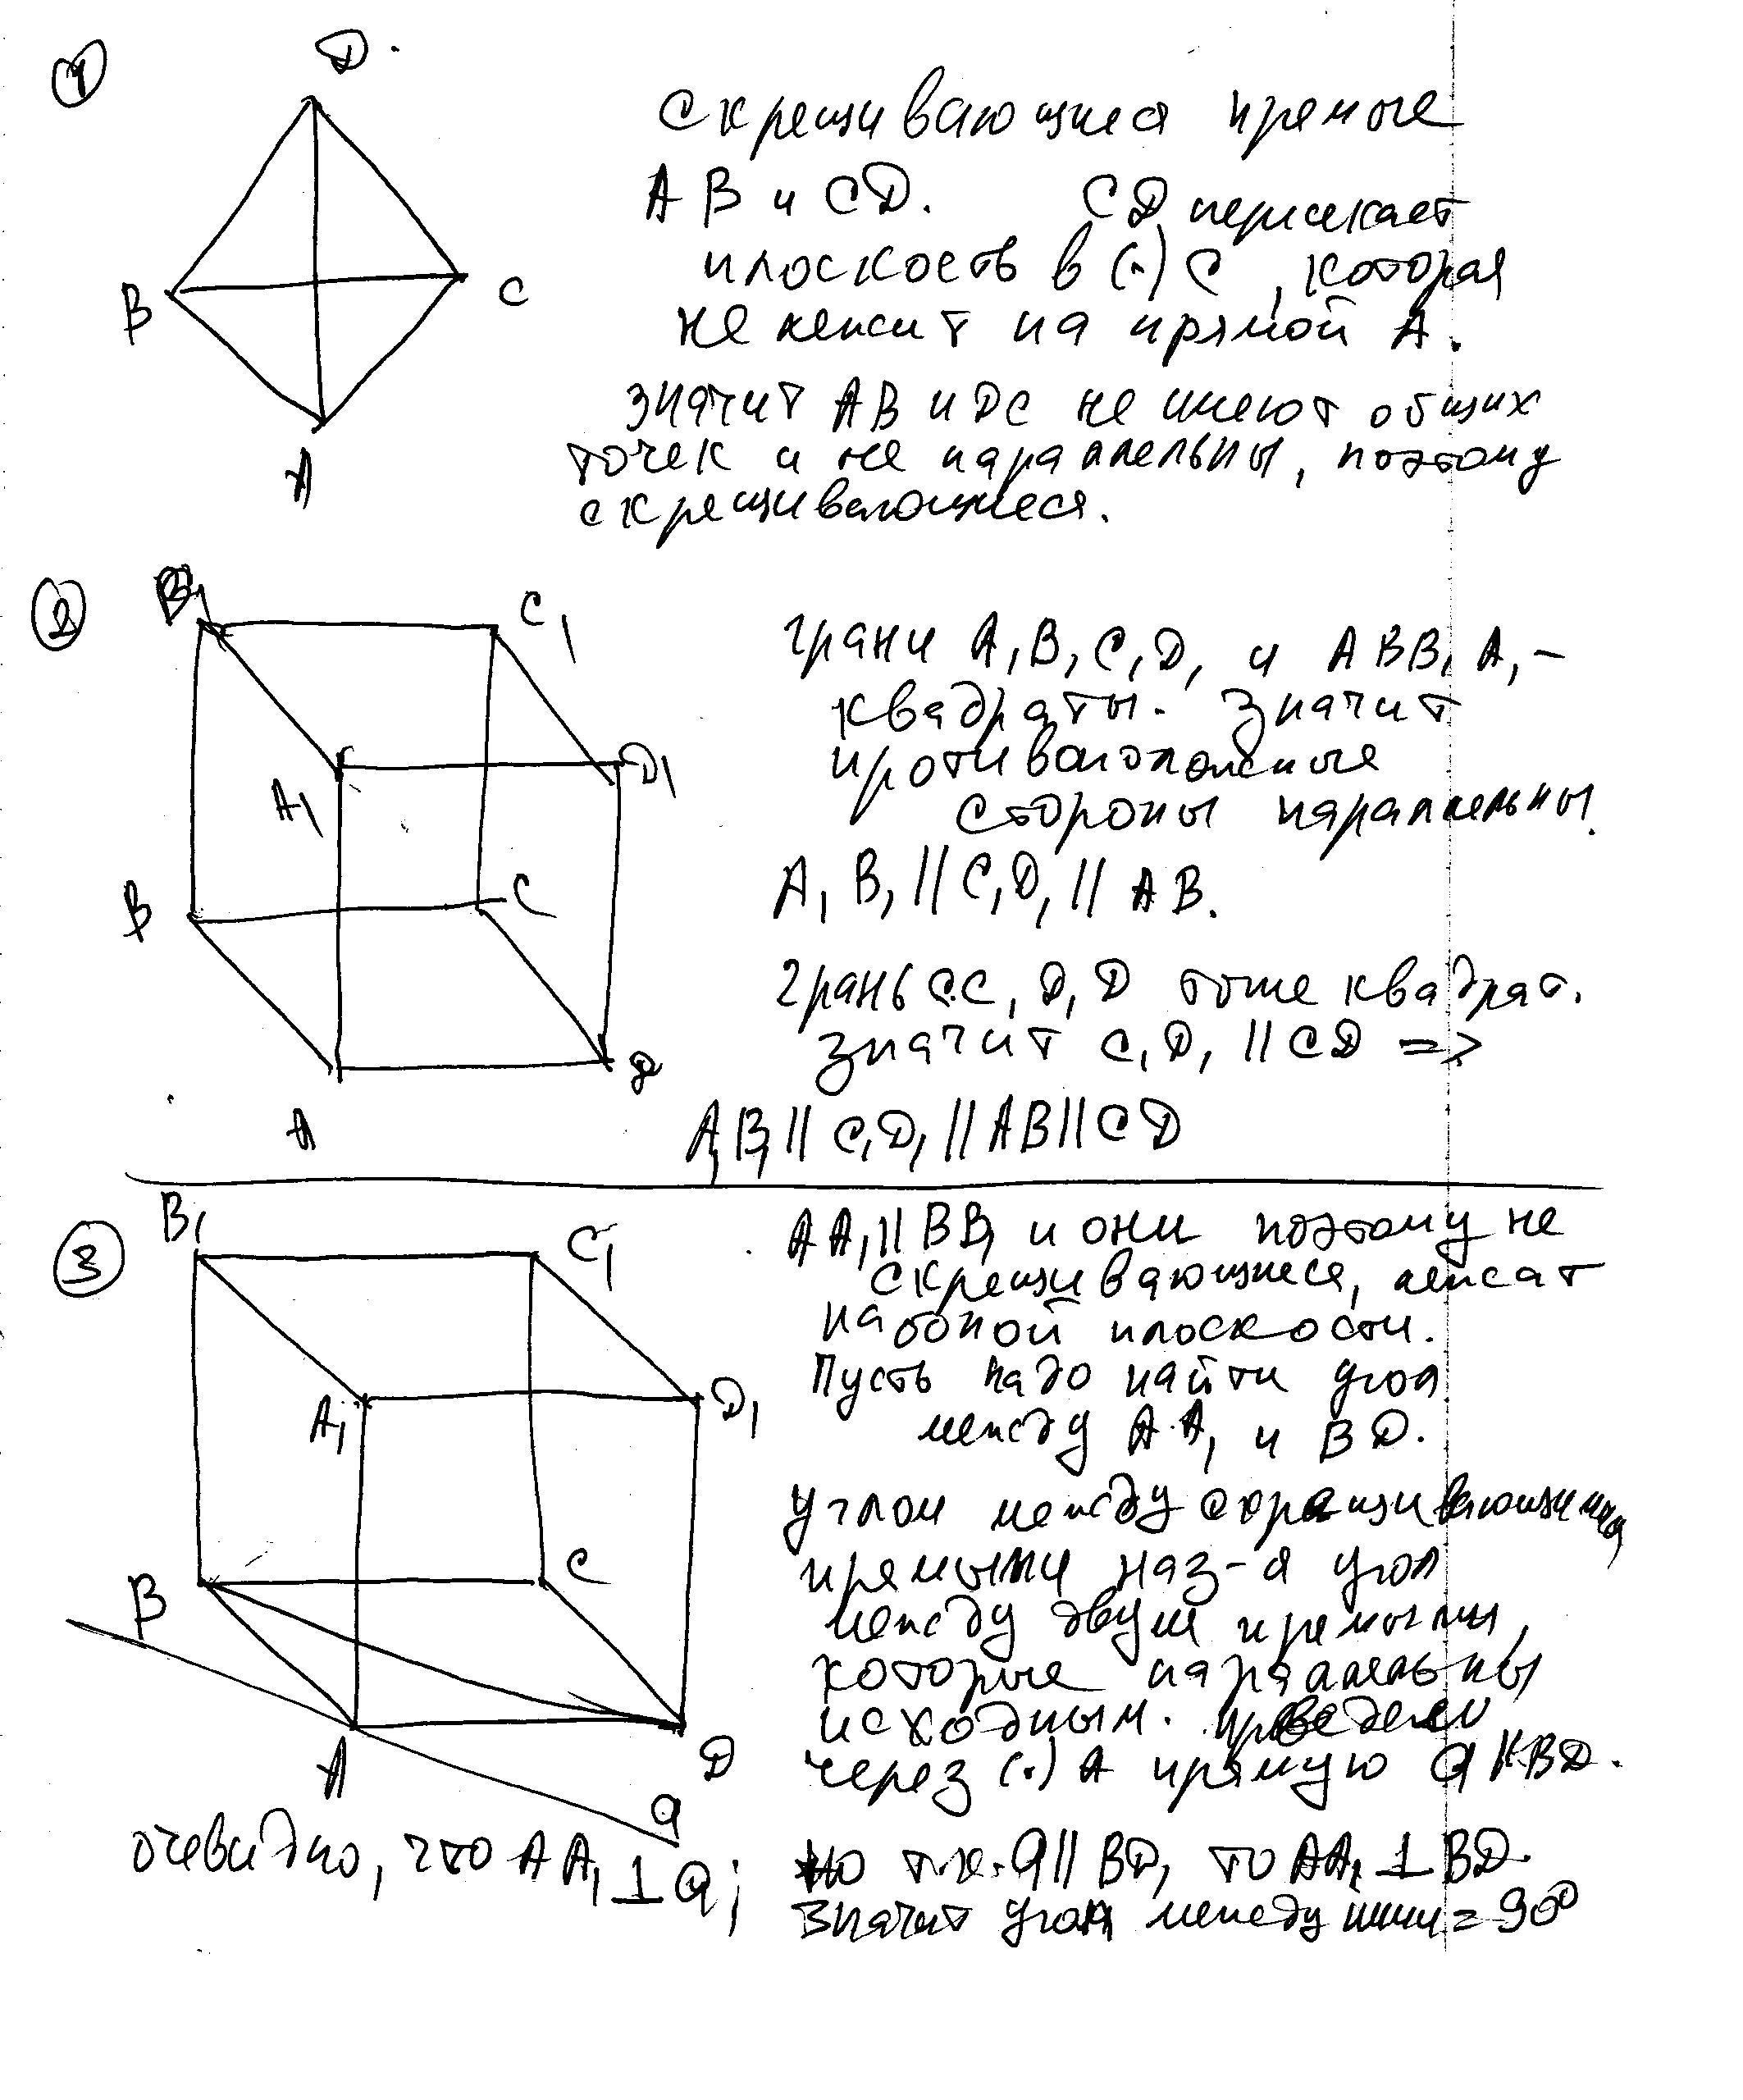 1
D.
B
C
A
скрещивающиеся прямые
AB и CD. CD пересекает
плоскость в (·) C, которая
не лежит на прямой A.
значит AB и DC не имеют общих
точек и не параллельны, поэтому
скрещивающиеся.
2
B1
C1
A1
D1
B
C
A
D
грани A1B1C1D1 и ABB1A1 –
квадраты. Значит
противоположные
стороны параллельны.
A1B1 || C1D1 || AB.
грань CC1D1D тоже квадрат.
значит C1D1 || CD =>
A1B1 || C1D1 || AB || CD
3
B1
C1
A1
D1
B
C
A
D
a
AA1 || BB1 и они поэтому не
скрещивающиеся, лежат
на одной плоскости.
Пусть надо найти угол
между AA1 и BD.
углом между скрещивающимися
прямыми наз-я угол
между двумя прямыми,
которые параллельны
исходным. проведем
через (·) A прямую a || BD.
очевидно, что AA1 ⊥ a;
но т.к. a || BD, то AA1 ⊥ BD.
Значит угол между ними = 90°